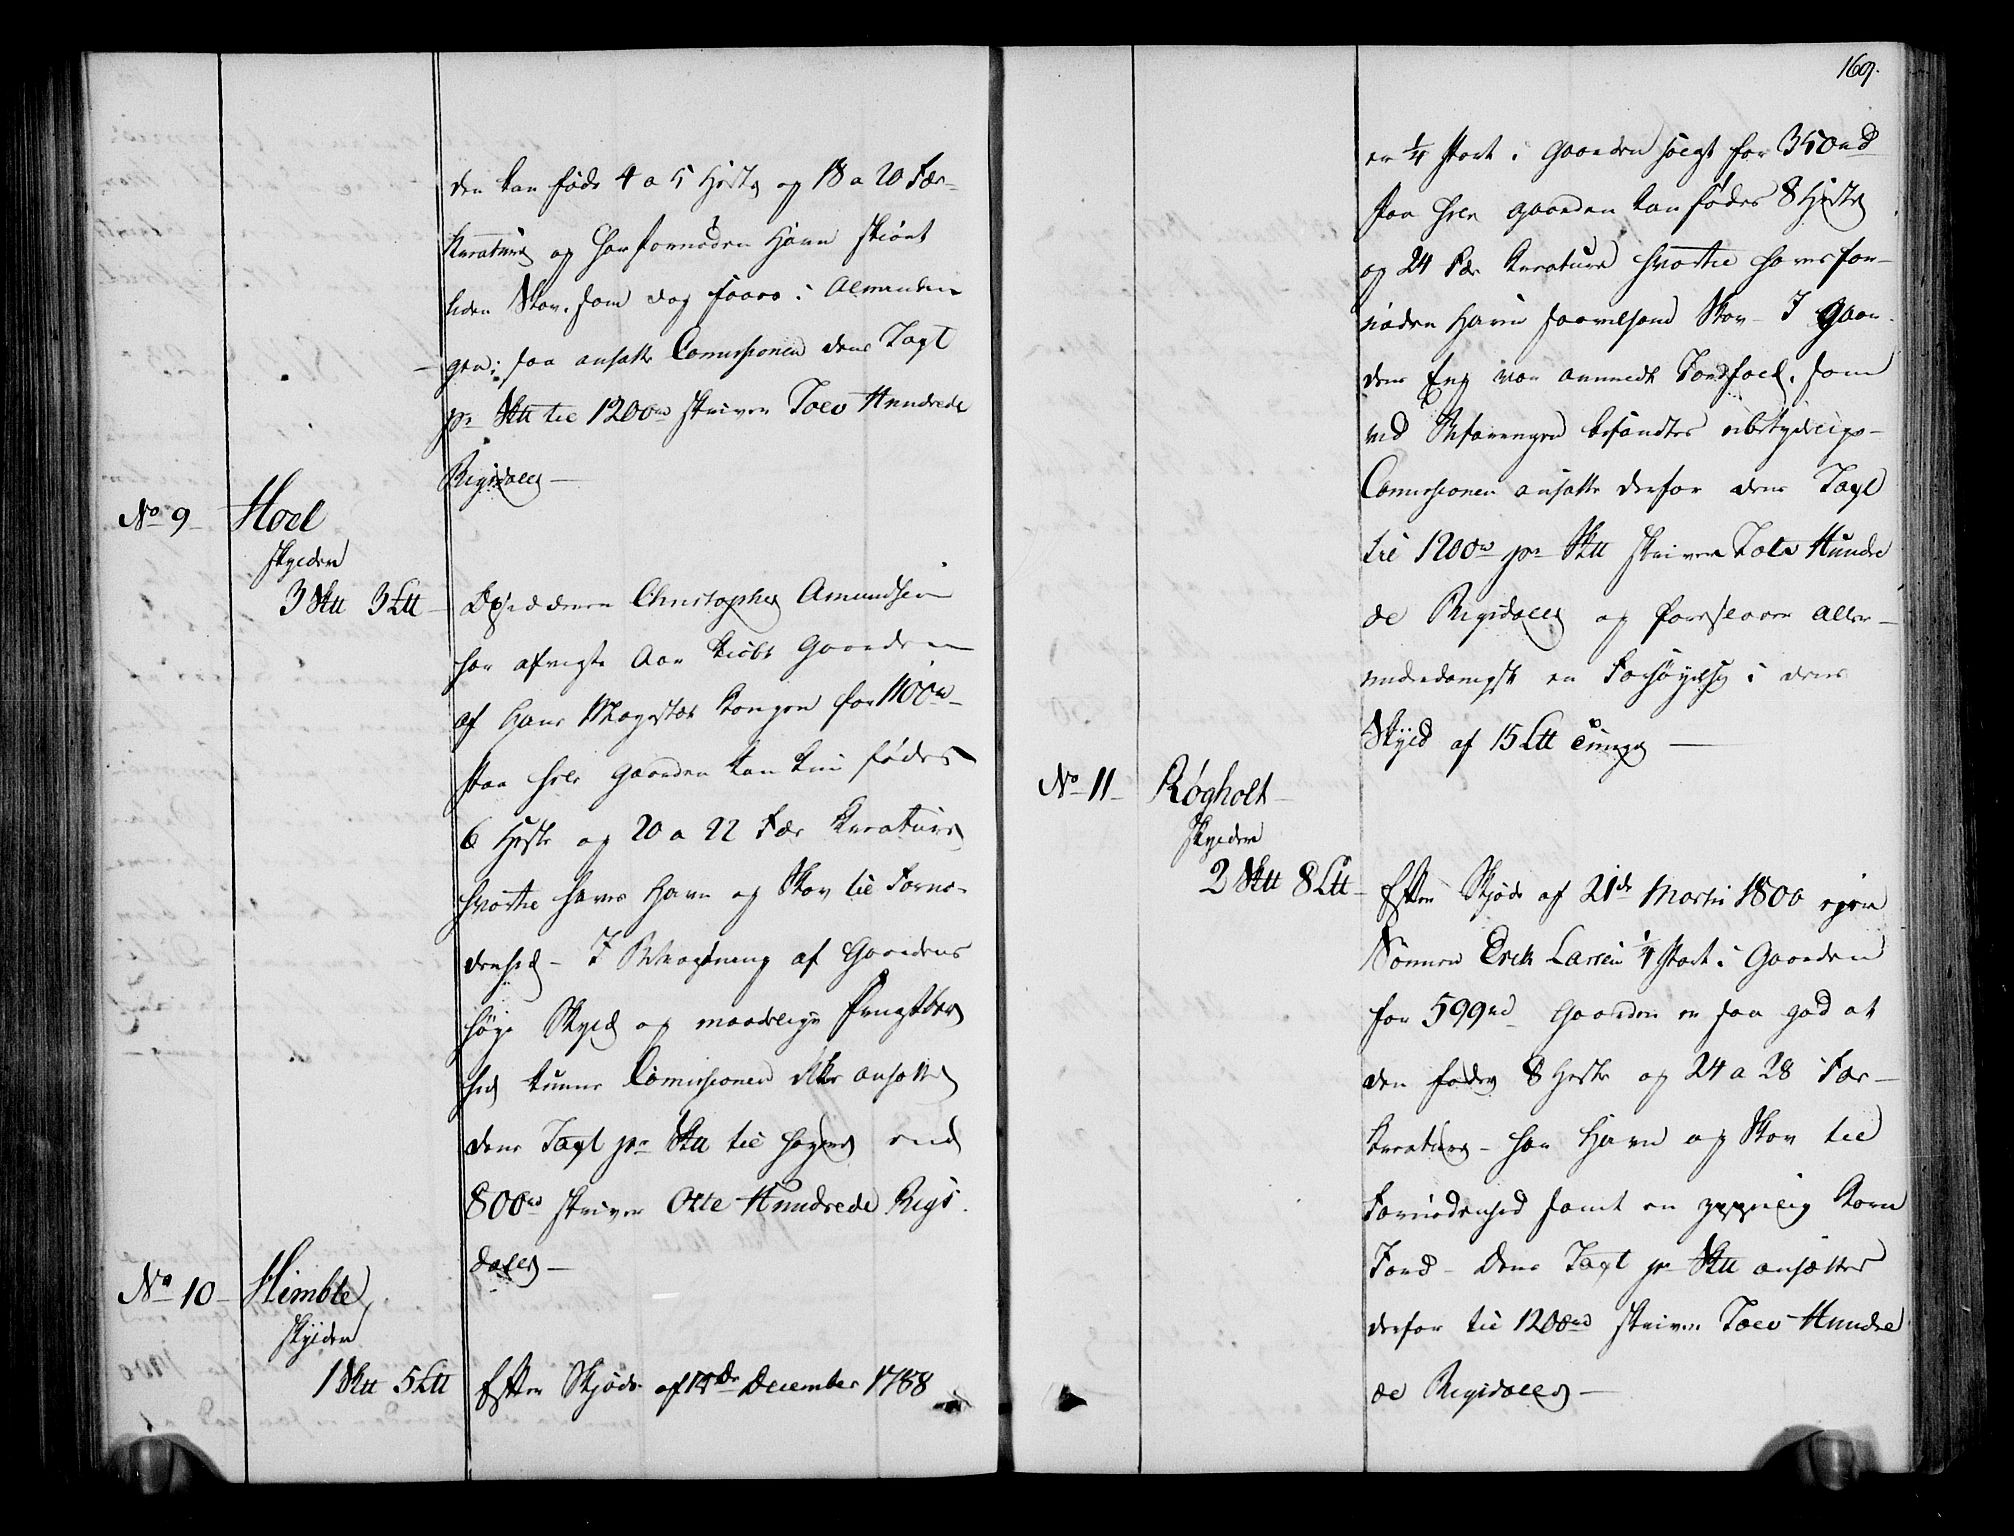 den kan føde 4 a 5 Heste og 18 a 20 Fær-
Kreature og har fornøden Havn skiønt
liden Skov. som dog faaes i Almenden-
gen; saa ansatte Comissionen dens Taxt
pr Sk℔ til 1200rd skriver Tolv Hundrede
Rigsdaler —
No 9 - Hoel
skylder
3 Sk℔ 3 L℔ - Opsidderen Christopher Amundsen
har afvigte Aar kiøbt Gaarden
af Hans Mayestæt Kongen for 1100rd -
Paa hele Gaarden kan kun fødes
6 Heste og 20 a 22 Fær Kreature
hvortil haves Havn og Skov til Fornø-
denhed - I Betragtning af Gaardens
høye Skyld og maadelige Frugtbar
hed kunne Comissionen ikke ansætte
dens Taxt pr Sk℔ til høyere end
800rd skriver Otte Hundrede Rigs-
daler —
No 10 - Himble,
skylder
1 Sk℔ 5 L℔ Efter Skjøde af 14de December 1788
169.
er ¼ Part i Gaarden solgt for 350rd
Paa hele Gaarden kan fødes 8 Heste
og 24 Fær Kreature hvortil haves for-
nøden Havn saavelsom Skov - I Gaar-
dens Eng var anmeldt Jordfald. som
ved Befaringen befandtes ubetydelig -
Comissionen ansatte derfor dens Taxt
til 1200rd pr Sk℔ skriver Tolv Hundre
de Rigsdaler og foreslaaer aller-
underdanigst en Forhøyelse i dens
Skyld af 15 L℔ Tunge —
No 11 - Røgholt -
skylder
2 Sk℔ 8 L℔ - Efter Skjøde af 21de Martii 1800 ejer
Sønnen Erik Larsen ¼ Part i Gaarden
for 599rd - Gaarden er saa god at
den føder 8 Heste og 24 a 28 Fær-
Kreature - har Havn og Skov til
Fornødenhed samt en ypperlig Korn
Jord - Dens Taxt pr Sk℔ ansættes
derfor til 1200rd skriver Tolv Hundre
de Rigsdaler —